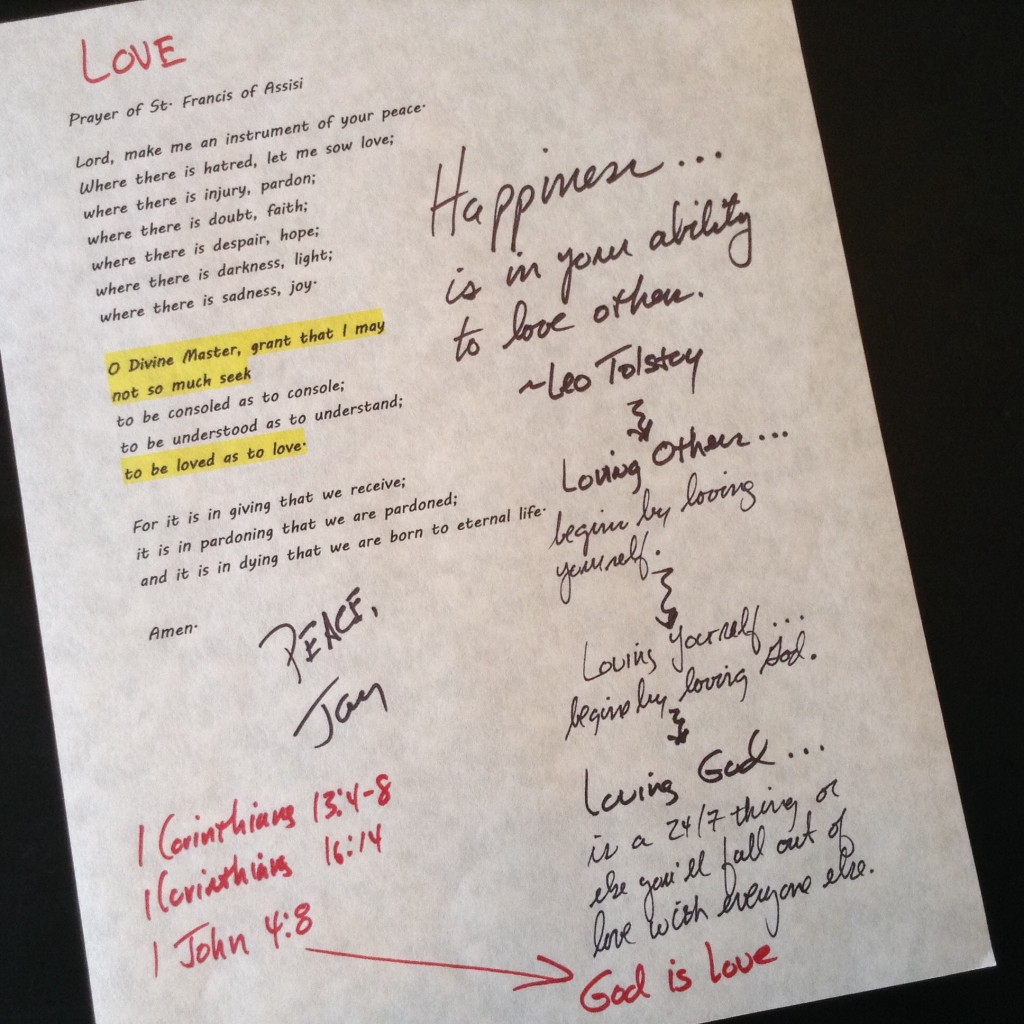 LOVE
Prayer of St. Francis of Assisi
Lord, make me an instrument of your peace.
Where there is hatred, let me sow love;
where there is injury, pardon;
where there is doubt, faith;
where there is despair, hope;
where there is darkness, light;
where there is sadness, joy.
O Divine Master, grant that I may
not so much seek
to be consoled as to console;
to be understood as to understand;
to be loved as to love.
For it is in giving that we receive;
it is in pardoning that we are pardoned;
and it is in dying that we are born to eternal life.
Amen.
PEACE,
Jay
1 Corinthians 13:4-8
1 Corinthians 16:14
1 John 4:8
Happiness...
is in your ability
to love others.
~Leo Tolstoy
Loving Others...
begins by loving
yourself.
Loving Yourself...
begins by loving God.
Loving God...
is a 24/7 thing or
else you'll fall out of
love with everyone else.
God is Love